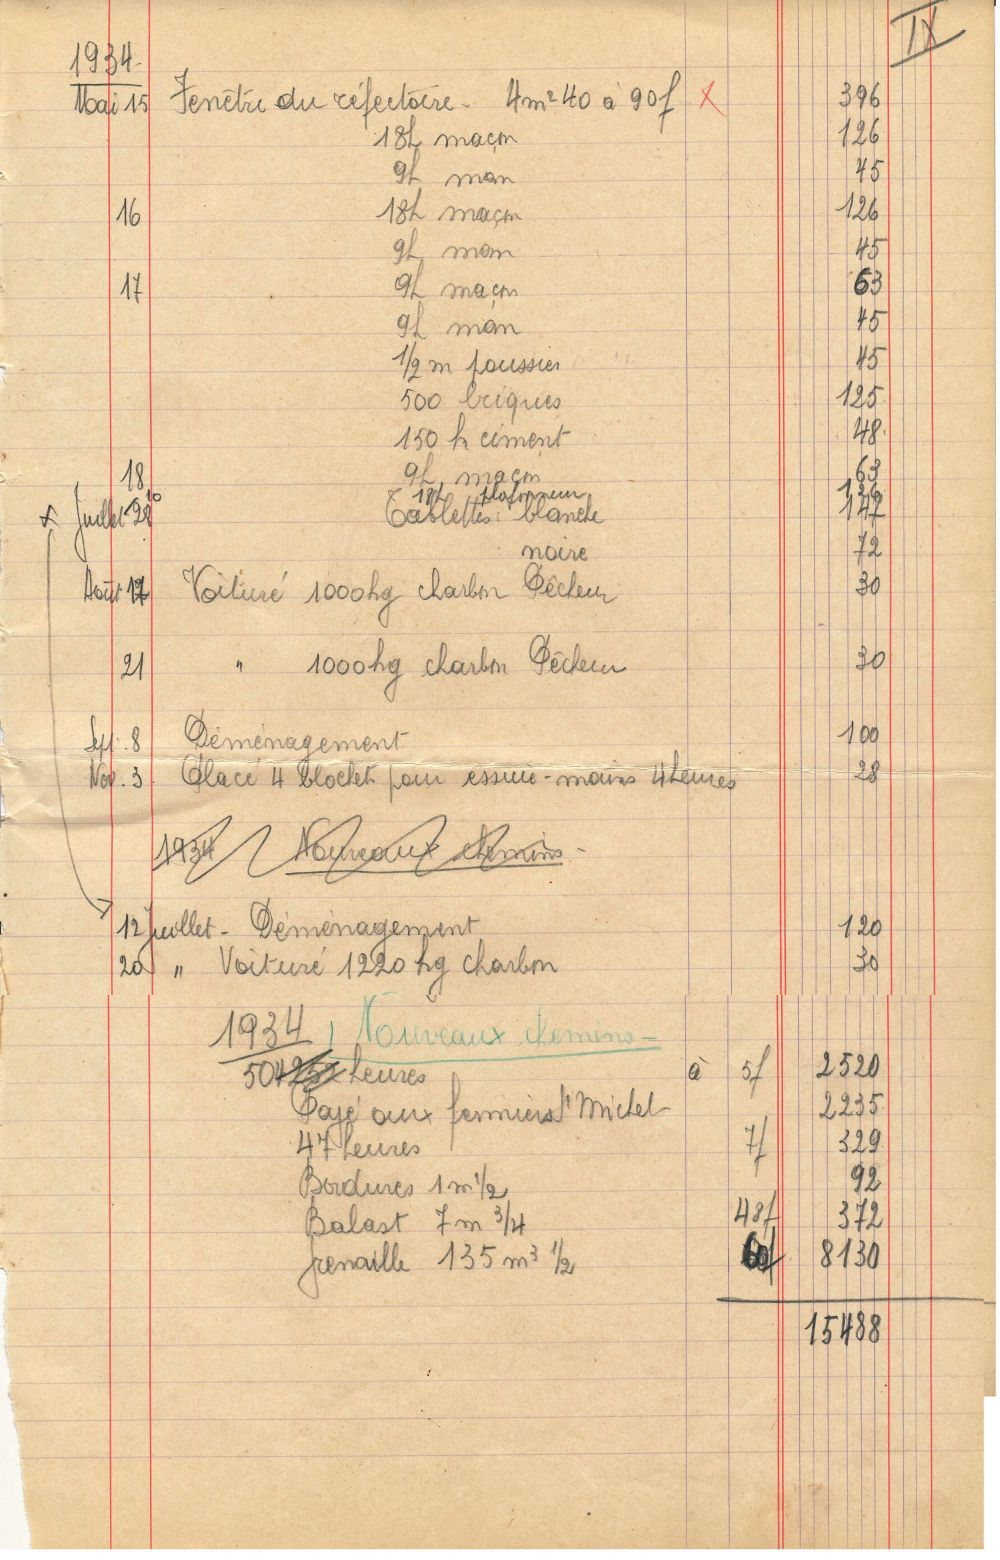 IX
1934
Mai 15 Fenêtre du réfectoire - 4m² 40 à 90f x 396
18h maçon 126
9h man 45
16 18h maçon 126
9h man 45
17 9h maçon 63
9h man 45
1/2 m poussier 45
500 briques 125
150 k ciment 48
18 9h maçon 63
18h plafonneur 126
x Juillet 28 Tablettes: blanche 147
noire 72
Août 17 Voituré 1000 kg charbon Pêcheur 30
21 " 1000 kg charbon Pêcheur 30
Sept. 8 Déménagement 100
Nov. 3 Placé 4 blochet pour essuie-mains 4 heures 28
1934 Nouveaux chemins -
12 Juillet - Déménagement 120
20 " Voituré 1220 kg charbon 30
1934 Nouveaux chemins -
504 heures à 5f 2520
Payé aux fermiers St Michel 2235
47 heures 7f 329
Bordures 1 m 1/2 92
Balast 7 m 3/4 48f 372
Grenaille 135 m³ 1/2 60f 8130
15488